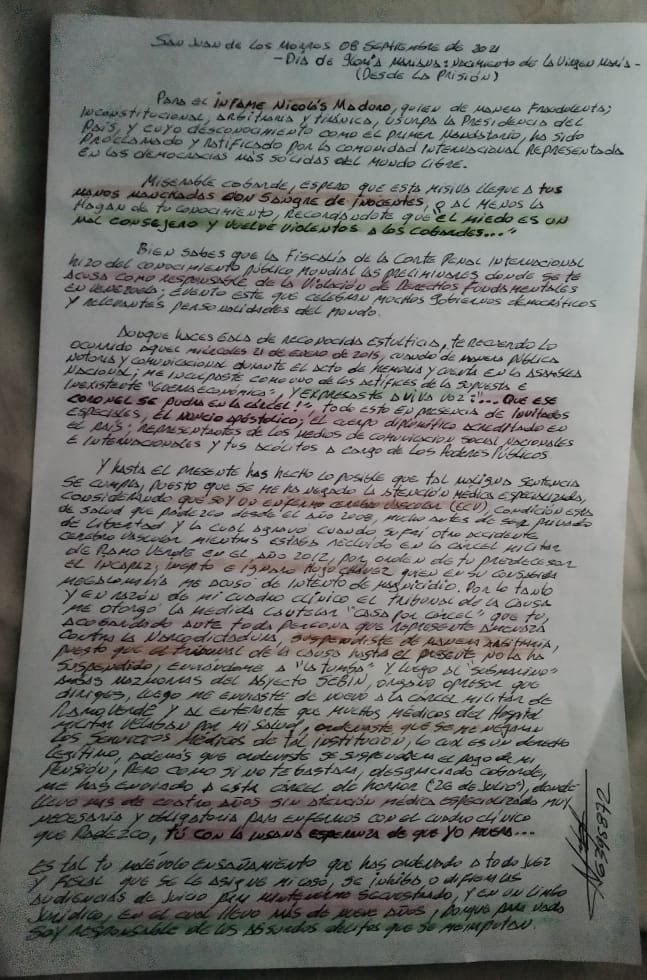 SAN JUAN DE LOS MORROS 08 SEPTIEMBRE DE 2021
- DIA DE GLORIA MARIANA: NACIMIENTO DE LA VIRGEN MARIA -
(DESDE LA PRISIÓN)
PARA EL INFAME NICOLÁS MADURO, QUIEN DE MANERA FRAUDULENTA;
INCONSTITUCIONAL, ARBITRARIA Y TIRÁNICA, USURPA LA PRESIDENCIA DEL
PAÍS, Y CUYO DESCONOCIMIENTO COMO EL PRIMER MANDATARIO, HA SIDO
PROCLAMADO Y RATIFICADO POR LA COMUNIDAD INTERNACIONAL REPRESENTADA
EN LAS DEMOCRACIAS MÁS SÓLIDAS DEL MUNDO LIBRE.
MISERABLE COBARDE, ESPERO QUE ESTA MISIVA LLEGUE A TUS
MANOS MANCHADAS CON SANGRE DE INOCENTES, O AL MENOS LA
HAGAN DE TU CONOCIMIENTO, RECORDÁNDOTE QUE "EL MIEDO ES UN
MAL CONSEJERO Y VUELVE VIOLENTOS A LOS COBARDES..."
BIEN SABES QUE LA FISCALÍA DE LA CORTE PENAL INTERNACIONAL
HIZO DEL CONOCIMIENTO PÚBLICO MUNDIAL LAS PRELIMINARES DONDE SE TE
ACUSA COMO RESPONSABLE DE LA VIOLACIÓN DE DERECHOS FUNDAMENTALES
EN VENEZUELA; EVENTO ESTE QUE CELEBRAN MUCHOS GOBIERNOS DEMOCRÁTICOS
Y RELEVANTES PERSONALIDADES DEL MUNDO.
AUNQUE HACES GALA DE RECONOCIDA ESTULTICIA, TE RECUERDO LO
OCURRIDO AQUEL MIÉRCOLES 21 DE ENERO DE 2015, CUANDO DE MANERA PÚBLICA
NOTORIA Y COMUNICACIONAL DURANTE EL ACTO DE MEMORIA Y CUENTA EN LA ASAMBLEA
NACIONAL; ME INCULPASTE COMO UNO DE LOS ARTÍFICES DE LA SUPUESTA E
INEXISTENTE "GUERRA ECONÓMICA", Y EXPRESASTE A VIVA VOZ: "... QUE ESE
CORONEL SE PUDRA EN LA CÁRCEL!", TODO ESTO EN PRESENCIA DE INVITADOS
ESPECIALES, EL NUNCIO APOSTÓLICO; EL CUERPO DIPLOMÁTICO ACREDITADO EN
EL PAÍS; REPRESENTANTES DE LOS MEDIOS DE COMUNICACIÓN SOCIAL NACIONALES
E INTERNACIONALES Y TUS ACÓLITOS A CARGO DE LOS PODERES PÚBLICOS.
Y HASTA EL PRESENTE HAS HECHO LO POSIBLE QUE TAL MALIGNA SENTENCIA
SE CUMPLA, PUESTO QUE SE ME HA NEGADO LA ATENCIÓN MÉDICA ESPECIALIZADA,
CONSIDERANDO QUE SOY UN ENFERMO CEREBRO VASCULAR (ECV), CONDICIÓN ESTA
DE SALUD QUE PADEZCO DESDE EL AÑO 2008, MUCHO ANTES DE SER PRIVADO
DE LIBERTAD Y LA CUAL AGRAVÓ CUANDO SUFRÍ OTRO ACCIDENTE
CEREBRO VASCULAR MIENTRAS ESTABA RECLUIDO EN LA CÁRCEL MILITAR
DE RAMO VERDE EN EL AÑO 2012, POR ORDEN DE TU PREDECESOR
EL INCAPAZ, INEPTO E IGNARO HUGO CHÁVEZ QUIEN EN SU CONSABIDA
MEGALOMANÍA ME ACUSÓ DE INTENTO DE MAGNICIDIO. POR LO TANTO
Y EN RAZÓN DE MI CUADRO CLÍNICO EL TRIBUNAL DE LA CAUSA
ME OTORGÓ LA MEDIDA CAUTELAR "CASA POR CÁRCEL" QUE TÚ,
ACOBARDADO ANTE TODA PERSONA QUE REPRESENTE AMENAZA
CONTRA LA NARCODICTADURA, SUSPENDISTE DE MANERA ARBITRARIA,
PUESTO QUE EL TRIBUNAL DE LA CAUSA HASTA EL PRESENTE NO LA HA
SUSPENDIDO, ENVIÁNDOME A "LA TUMBA" Y LUEGO AL "SUBMARINO"
AMBAS MAZMORRAS DEL ABYECTO SEBIN, ÓRGANO OPRESOR QUE
DIRIGES, LUEGO ME ENVIASTE DE NUEVO A LA CÁRCEL MILITAR DE
RAMO VERDE Y AL ENTERARTE QUE MUCHOS MÉDICOS DEL HOSPITAL
MILITAR VELABAN POR MI SALUD, ORDENASTE QUE SE ME NEGARAN
LOS SERVICIOS MÉDICOS DE TAL INSTITUCIÓN, LO CUAL ES UN DERECHO
LEGÍTIMO, ADEMÁS QUE ORDENASTE SE SUSPENDIERA EL PAGO DE MI
PENSIÓN, PERO COMO SI NO TE BASTARA, DESGRACIADO COBARDE,
ME HAS ENVIADO A ESTA CÁRCEL DE HORROR (26 DE JULIO), DONDE
LLEVO MÁS DE CUATRO AÑOS SIN ATENCIÓN MÉDICA ESPECIALIZADA MUY
NECESARIA Y OBLIGATORIA PARA ENFERMOS CON EL CUADRO CLÍNICO
QUE PADEZCO, TÚ CON LA INSANA ESPERANZA DE QUE YO MUERA...
ES TAL TU MALÉVOLO ENSAÑAMIENTO QUE HAS ORDENADO A TODO JUEZ
Y FISCAL QUE SE LE ASIGNE MI CASO, SE INHIBA O DIFIERA LAS
AUDIENCIAS DE JUICIO PARA MANTENERME SECUESTRADO, Y EN UN LIMBO
JURÍDICO, EN EL CUAL LLEVO MÁS DE NUEVE AÑOS, PORQUE PARA NADA
SOY RESPONSABLE DE LOS ABSURDOS DELITOS QUE SE ME IMPUTAN.